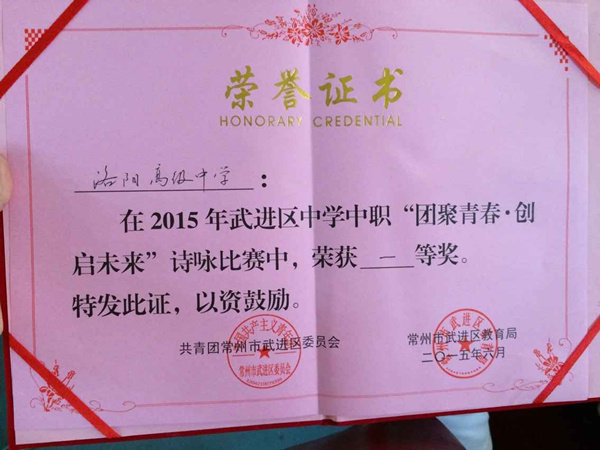 荣誉证书
HONORARY CREDENTIAL
洛阳高级中学：
在2015年武进区中学中职“团聚青春·创
启未来”诗咏比赛中，荣获 一 等奖。
特发此证，以资鼓励。
共青团常州市武进区委员会
常州市武进区教育局
二〇一五年六月
常州市武进区委员会